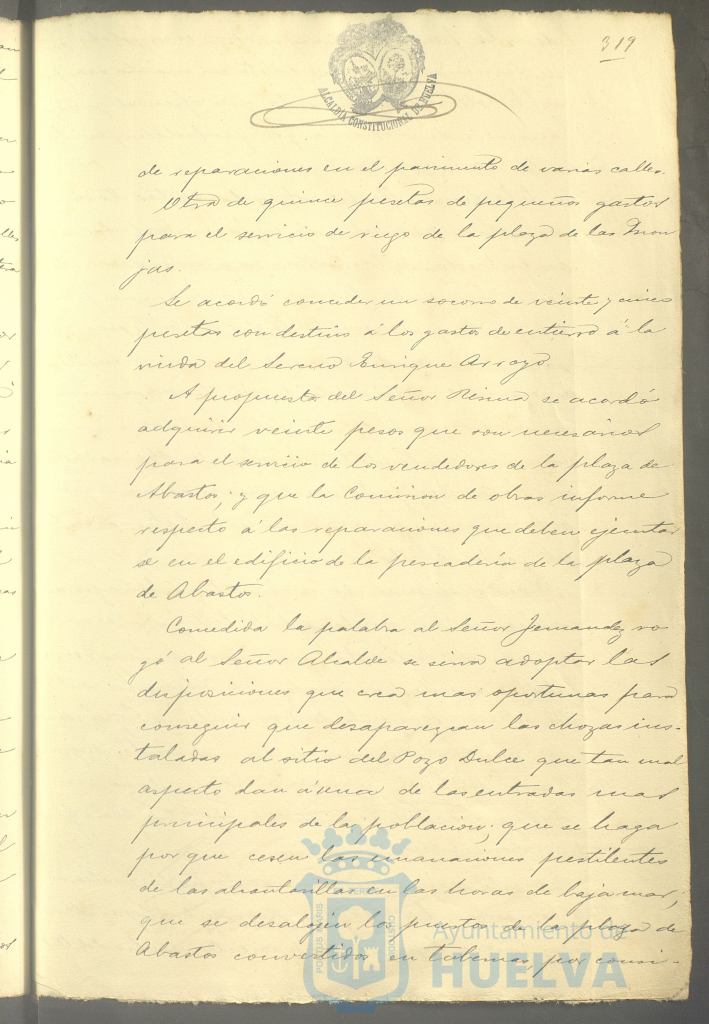 319
ALCALDÍA CONSTITUCIONAL DE HUELVA
de reparaciones en el pavimento de varias calles.
Otra de quince pesetas de pequeños gastos
para el servicio de riego de la plaza de las Mon
jas.
Se acordó conceder un socorro de veinte y cinco
pesetas con destino á los gastos de entierro á la
viuda del Sereno Enrique Arroyo.
A propuesta del Señor se acordó
adquirir veinte pesos que son necesarios
para el servicio de los vendedores de la plaza de
Abastos; y que la Comision de obras informe
respecto á las reparaciones que deben ejecutar
se en el edificio de la pescadería de la plaza
de Abastos.
Concedida la palabra al Señor Fernandez ro
gó al Señor Alcalde se sirva adoptar las
disposiciones que crea mas oportunas para
conseguir que desaparezcan las chozas ins-
taladas al sitio del Pozo Dulce que tan mal
aspecto dan á una de las entradas mas
principales de la poblacion; que se haga
por que cesen las emanaciones pestilentes
de las alcantarillas en las horas de baja mar;
que se desalojen los puestos de la plaza de
Abastos convertidos en tabernas por consi-
PORTUS MARIS
Ayuntamiento de
HUELVA